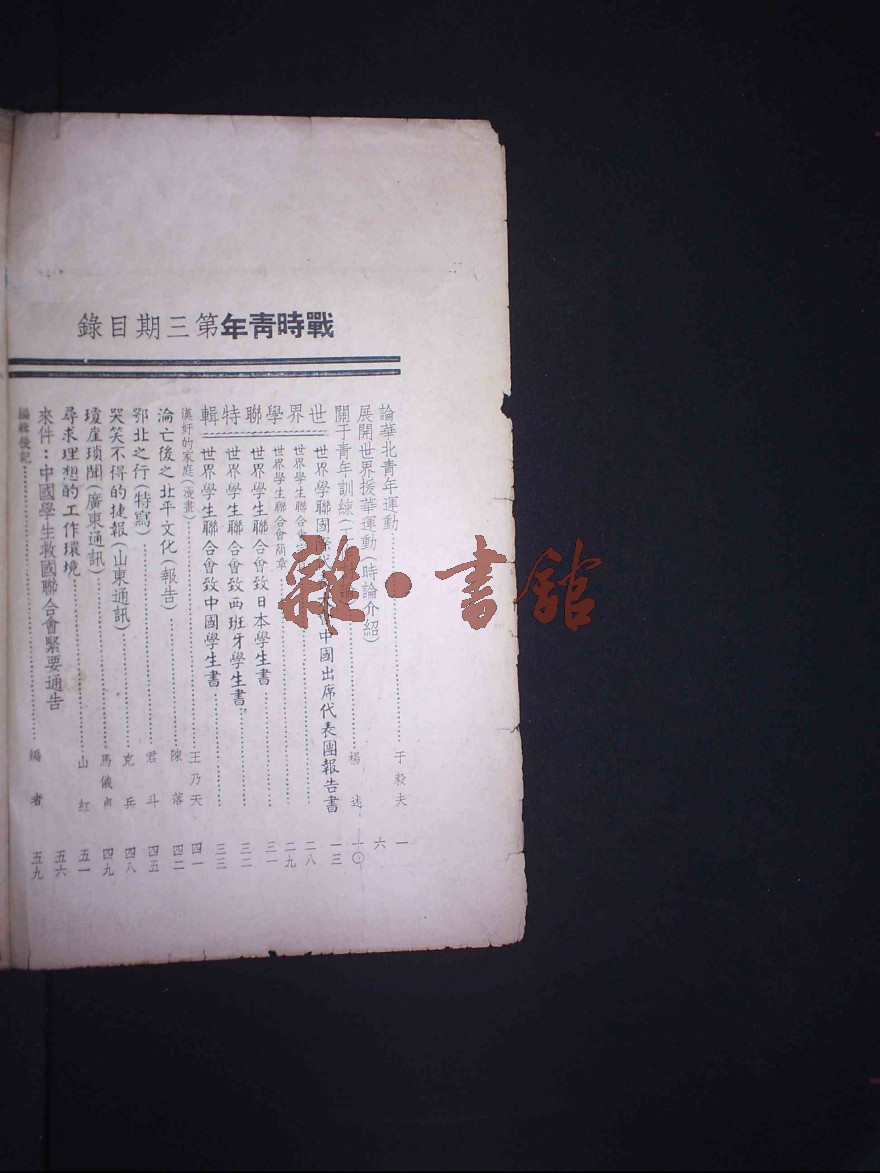 戰時青年第三期目錄
論華北青年運動 于毅夫 一
展開世界援華運動(時論介紹) 六
關于青年訓練 楊述 一〇
世界學聯特輯
世界學聯國際 中國出席代表團報告書 一三
世界學生聯合會 二八
世界學生聯合會簡章 二九
世界學生聯合會致日本學生書 三一
世界學生聯合會致西班牙學生書 三二
世界學生聯合會致中國學生書 三三
漢奸的家庭(漫畫) 王乃天 四一
淪亡後之北平文化(報告) 陳落 四二
鄂北之行(特寫) 君斗 四五
哭笑不得的捷報(山東通訊) 克兵 四八
瓊崖瑣聞(廣東通訊) 馬儀貞 四九
尋求理想的工作環境 山紅 五一
來件:中國學生救國聯合會緊要通告 五六
編輯後記 編者 五九
雜·書館